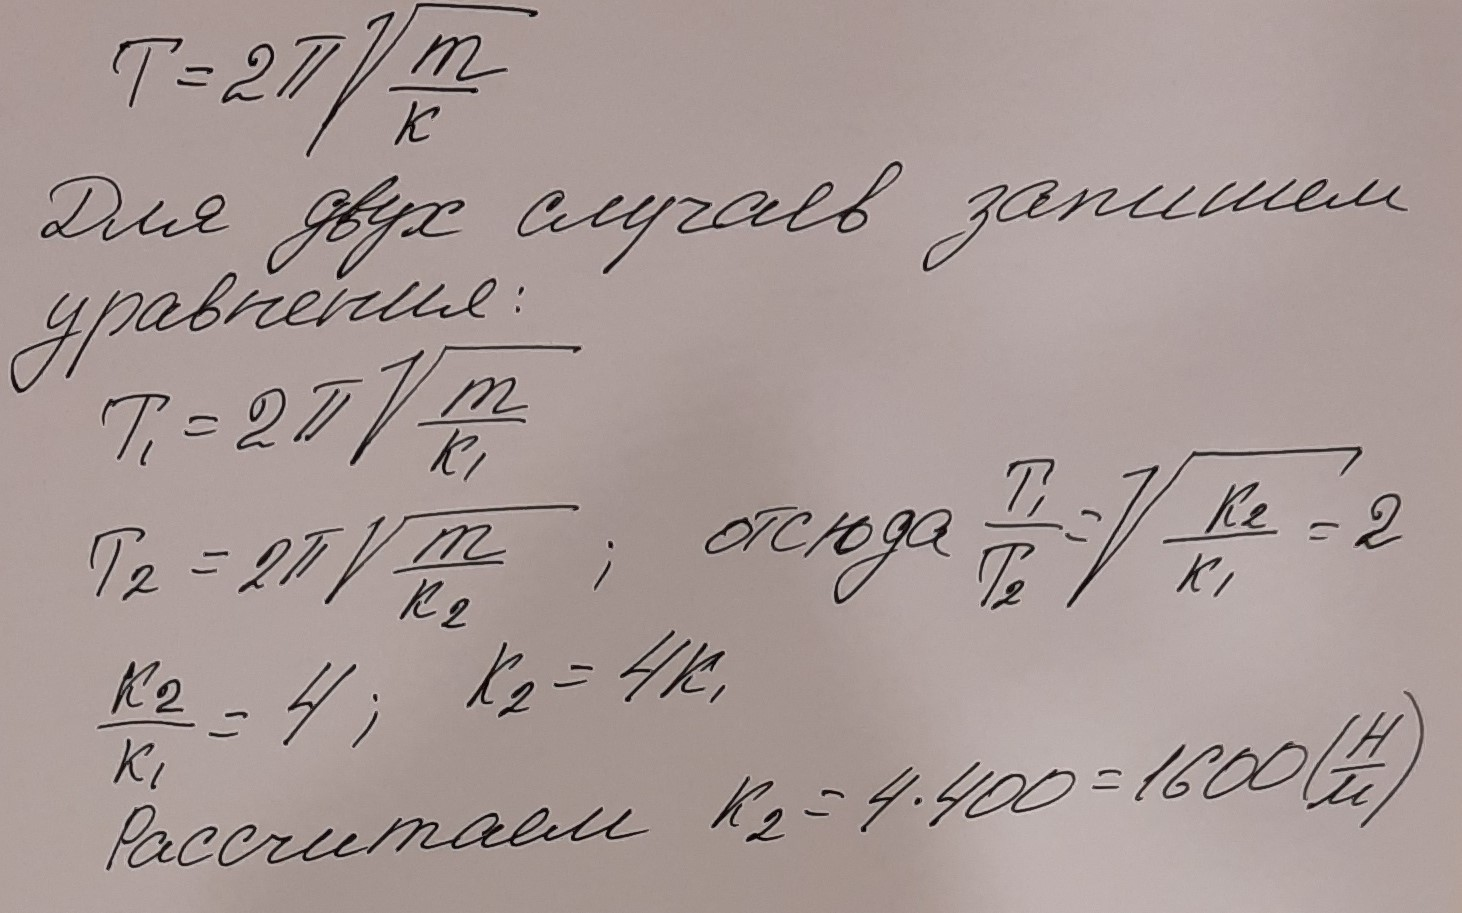 T = 2π√(m/к)
Для двух случаев запишем
уравнения:
T₁ = 2π√(m/к₁)
T₂ = 2π√(m/к₂) ; отсюда T₁/T₂ = √(к₂/к₁) = 2
к₂/к₁ = 4 ; к₂ = 4к₁
Рассчитаем к₂ = 4·400 = 1600 (Н/м)